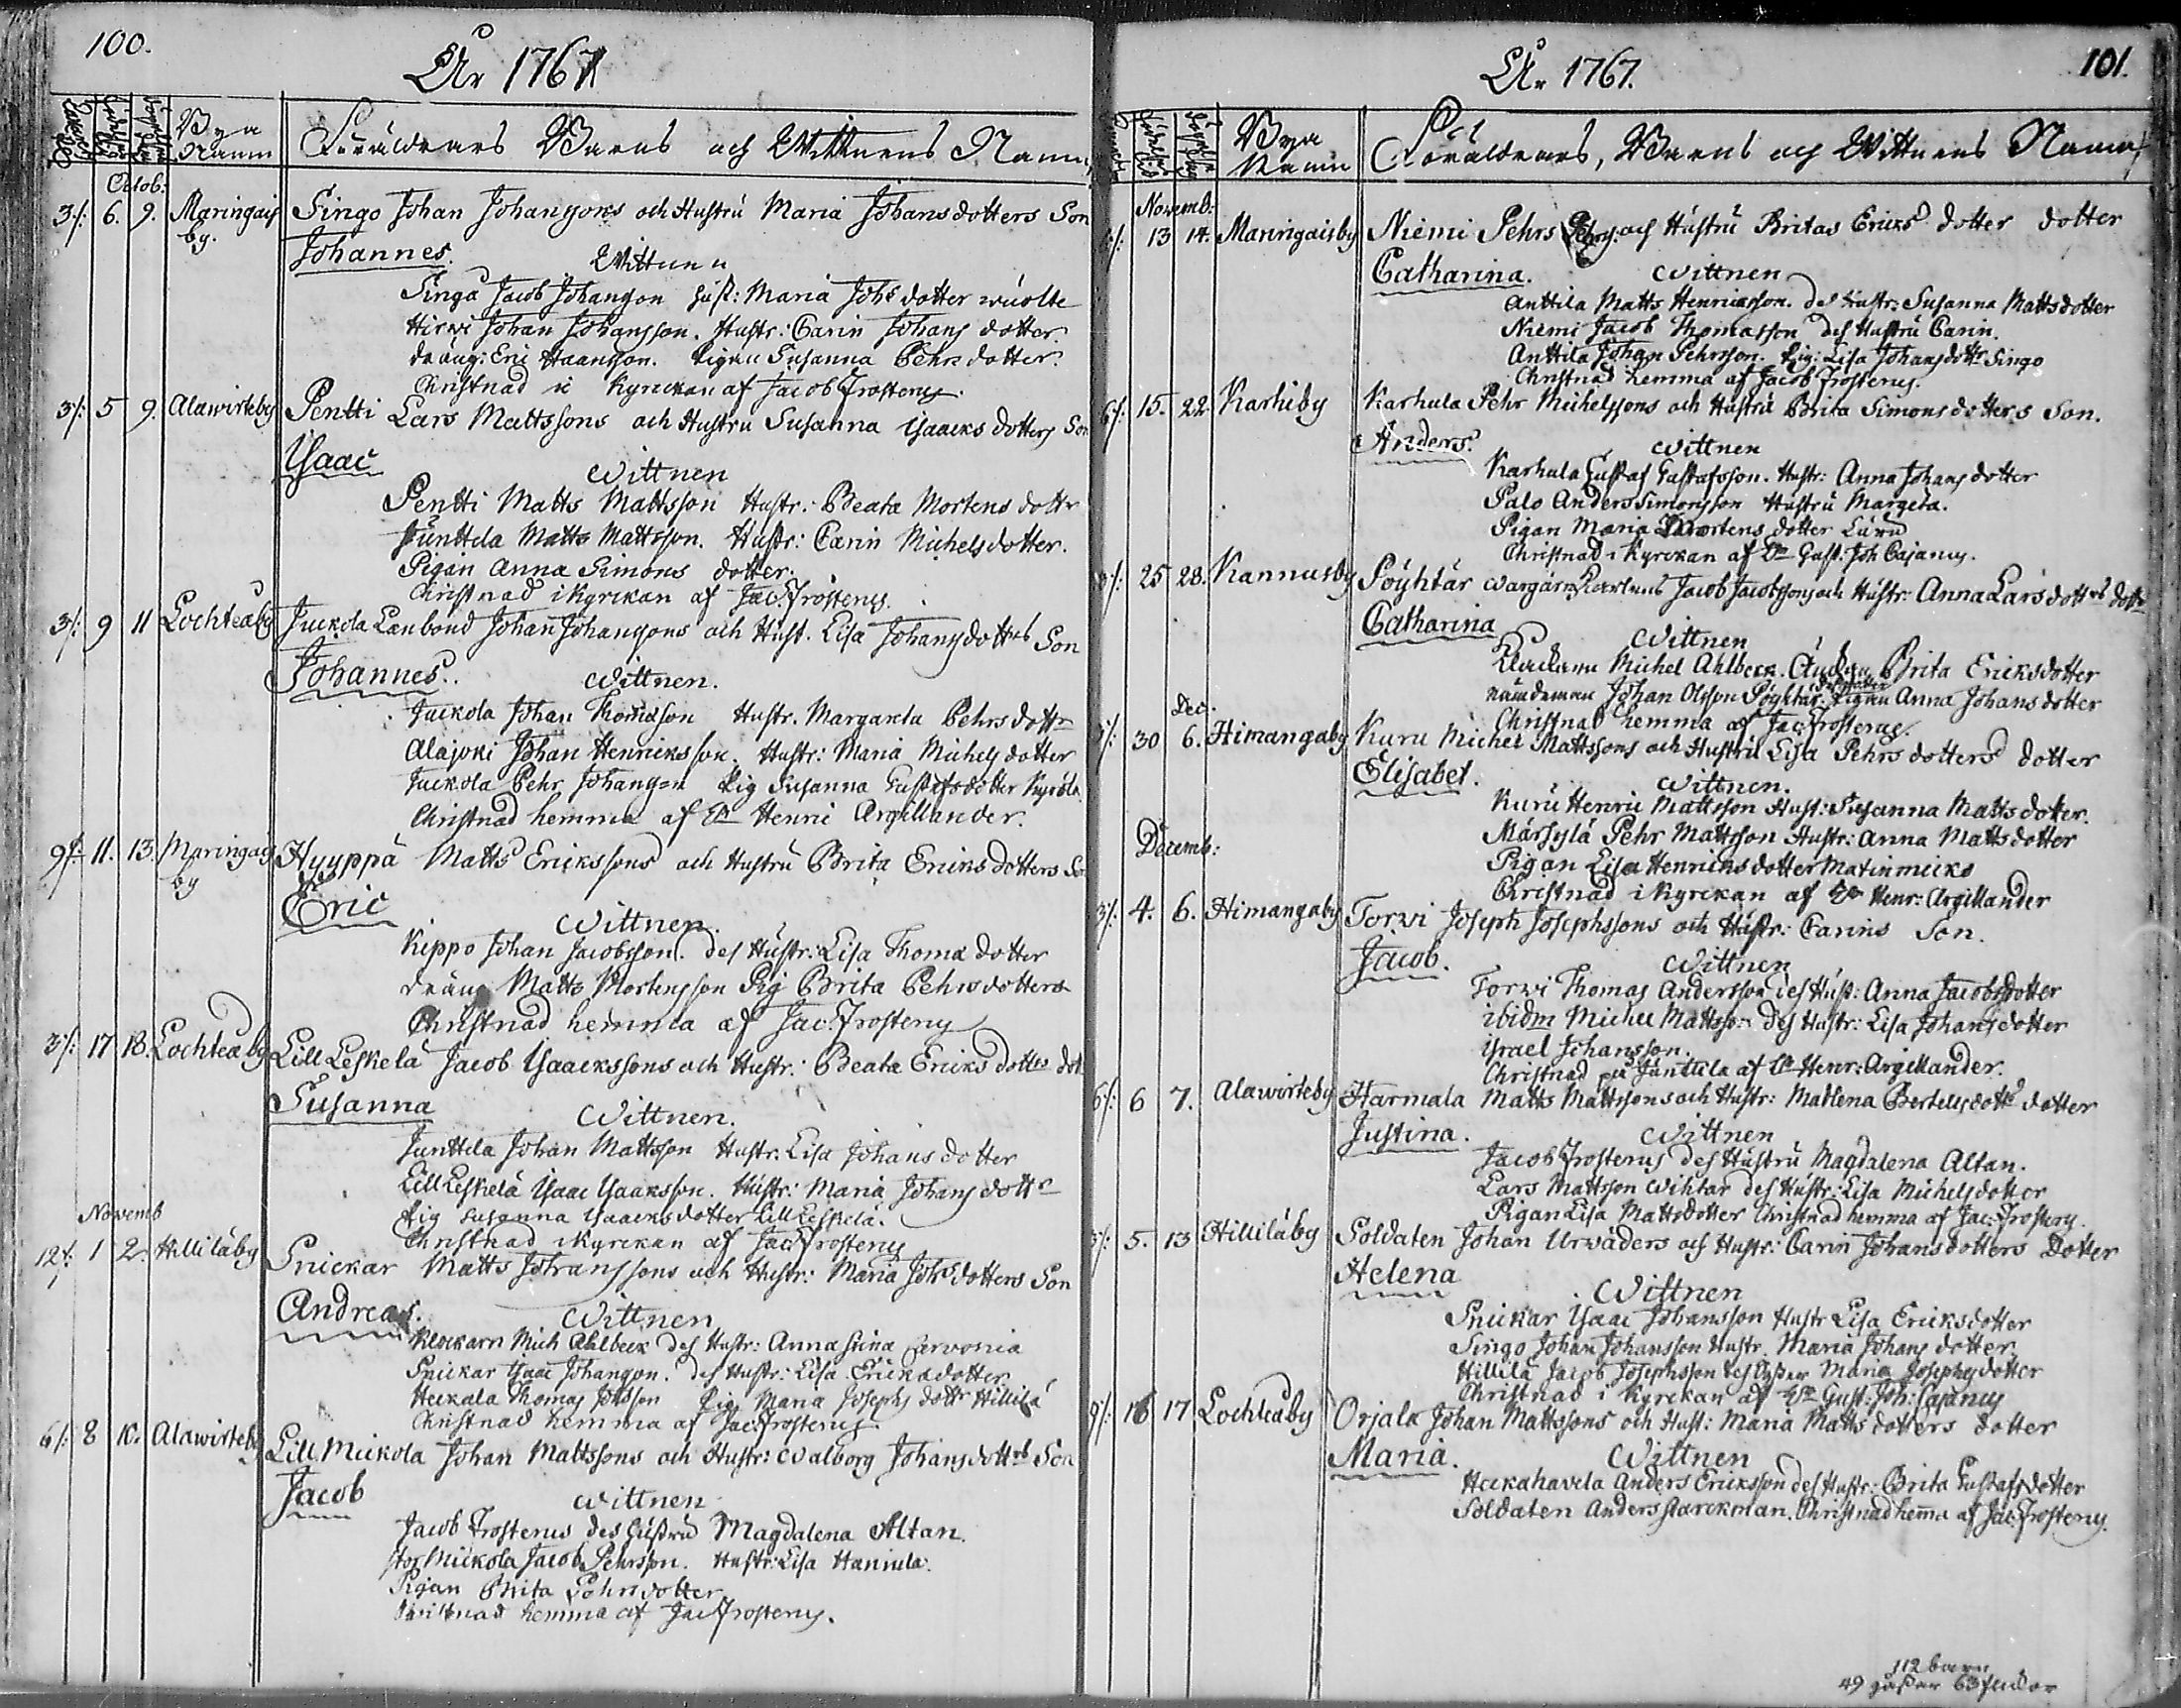 100.
År 1767
Bya Namn
Föräldrars Barns och Wittnens Namn
Octob:
3/: 6. 9. Maringais by. Singo Johan Johanssons och Hustru Maria Johansdotters Son
Johannes.
Wittnen
Singo Jacob Johansson Hust: Maria Johs dotter
Hirvi Johan Johansson. Hustr: Carin Johans dotter.
dräng: Eric Haansson. Pigan Susanna Pehrs dotter.
Christnad i Kyrckan af Jacob Frosterus.
3/: 5 9. Alawirteby Pentti Lars Mattssons och Hustru Susanna Isaacks dotters Son
Isaac
Wittnen
Pentti Matts Mattsson Hustr: Beata Mortens dottr
Junttila Matts Mattsson. Hustr: Carin Michelsdotter.
Pigan Anna Simons dotter.
Christnad i Kyrckan af Jac. Frosterus.
3/: 9 11 Lochteåby Juckola Lanbond Johan Johanssons och Hust. Lisa Johansdottrs Son
Johannes.
Wittnen.
Juckola Johan Thomasson Hustr. Margareta Pehrsdottr
Alajoki Johan Henricksson. Hustr: Maria Michels dotter
Juckola Pehr Johansson Pig Susanna Gustafsdotter
Christnad hemma af Hr Henric Argillander.
9/: 11. 13. Maringais by Hyyppä Matts Erickssons och Hustru Brita Ericksdotters Son
Eric
Wittnen.
Keppo Johan Jacobsson. des Hustr: Lisa Thomædotter
dräng Matts Mortensson Pig Brita Pehrsdotter
Christnad hemma af Jac: Frosterus
3/: 17 18. Lochteåby Lill Leskelä Jacob Isaackssons och Hustr: Beata Ericks dottrs dot
Susanna
Wittnen.
Junttila Johan Mattsson Hustr. Lisa Johans dotter
Lill Leskelä Isaac Isaacksson. Hustr: Maria Johans dottr
Pig Susanna Isaacksdotter Lill Leskelä.
Christnad i Kyrckan af Jac: Frosterus
Novemb
12/: 1 2. Hilliläby Snickar Matts Johanssons och Hustr: Maria Johs dotters Son
Andreas.
Wittnen
Klockarn Mich Ahlbeck des Hustr: Anna Stina Cervonia
Snickar Isaac Johansson. des Hustr: Lisa Ericksdotter.
Heickala Thomas Johsson Pig Maria Josephs dottr Hillilä
Christnad hemma af Jac: Frosterus
6/: 8 10. Alawirteby Lill Mickola Johan Mattssons och Hustr: Walborg Johansdottrs Son
Jacob
Wittnen
Jacob Frosterus des Hustru Magdalena Altan.
Stor Mickola Jacob Pehrsson. Hustr: Lisa Haniula.
Pigan Brita Pehrsdotter
Christnad hemma af Jac Frosterus.
101.
År 1767.
Bya Namn
Föräldrars, Barns och Wittnens Namn
Novemb:
13 14. Maringaisby Niemi Pehrs Pehrs: och Hustru Britas Ericks dotter dotter
Catharina.
Wittnen
Anttila Matts Henricksson. des Hustr: Susanna Mattsdotter
Niemi Jacob Thomasson des Hustru Carin.
Anttila Johan Pehrsson. Pig: Lisa Johansdottr Singo
Christnad hemma af Jacob Frosterus.
6/: 15. 22. Karhiby Karhula Pehr Michelssons och Hustru Brita Simonsdotters Son.
Anders.
Wittnen
Karhula Gustaf Gustafsson. Hustr: Anna Johansdotter
Palo Anders Simonsson Hustru Margeta.
Pigan Maria Mortens dotter
Christnad i Kyrckan af Hr Gust. Joh Cajanus.
3/: 25 28. Kannusby Pöyhtär Jacob Jacobssons och Hustr: Anna Larsdottrs dottr
Catharina
Wittnen
Klockarn Michel Ahlbeck. Änckan Brita Ericksdotter
nämdeman Johan Olsson Pöyhtär. Pigan Anna Johansdotter
Christnad hemma af Jac: Frosterus.
Dec.
30 6. Himangaby Kuru Michel Mattssons och Hustru Lisa Pehrsdotters dotter
Elisabet.
Wittnen.
Kuru Henric Mattsson Hust: Susanna Mattsdotter.
Märsylä Pehr Mattsson Hustr: Anna Mattsdotter
Pigan Lisa Henricksdotter
Christnad i Kyrckan af Hr Henr: Argillander
Decemb:
3/: 4. 6. Himangaby Torvi Joseph Josephssons och Hustr: Carins Son.
Jacob.
Wittnen
Torvi Thomas Andersson des Hust: Anna Jacobsdotter
ibidm Michel Mattsson des Hustr: Lisa Johansdotter
Israel Johansson.
Christnad på Junttila af Hr Henr: Argillander.
6/: 6 7. Alawirteby Harmala Matts Mattssons och Hustr: Madlena Bertelsdottrs dotter
Justina.
Wittnen
Jacob Frosterus des Hustru Magdalena Altan.
Lars Mattsson Wihtar des Hustr: Lisa Michelsdotter
Pigan Lisa Mattsdotter Christnad hemma af Jac: Frosterus.
3/: 5. 13 Hilliläby Soldaten Johan Urwaders och Hustr: Carin Johansdotters Dotter
Helena
Wittnen
Snickar Isaac Johansson Hustr Lisa Ericksdotter
Singo Johan Johansson Hustr. Maria Johans dotter
Hillilä Jacob Josephsson des Syster Maria Josephsdotter
Christnad i Kyrckan af Hr Gust: Joh: Cajanus
9/: 16 17 Lochteåby Orjala Johan Mattssons och Hust: Maria Matts dotters dotter
Maria.
Wittnen
Heickahavela Anders Ericksson des Hustr: Brita Gustafsdotter
Soldaten Anders Starckman. Christnad hema af Jac: Frosterus.
112 barn
49 gåssar 63 flickor